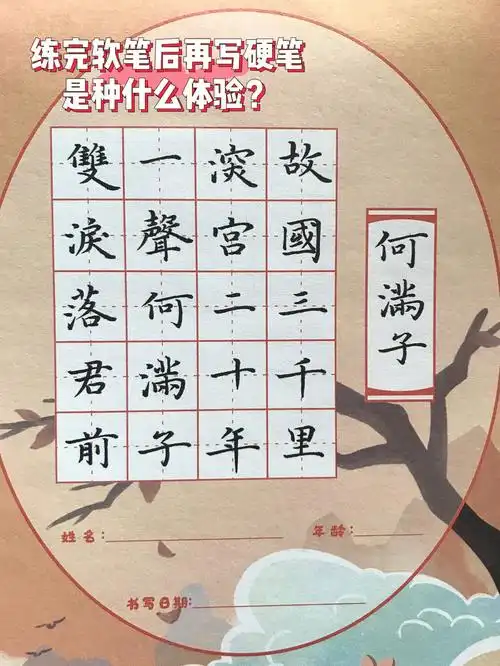 练完软笔后再写硬笔
是种什么体验?
何滿子
故國三千里
深宮二十年
一聲何滿子
雙淚落君前
姓名:
年龄:
书写日期: